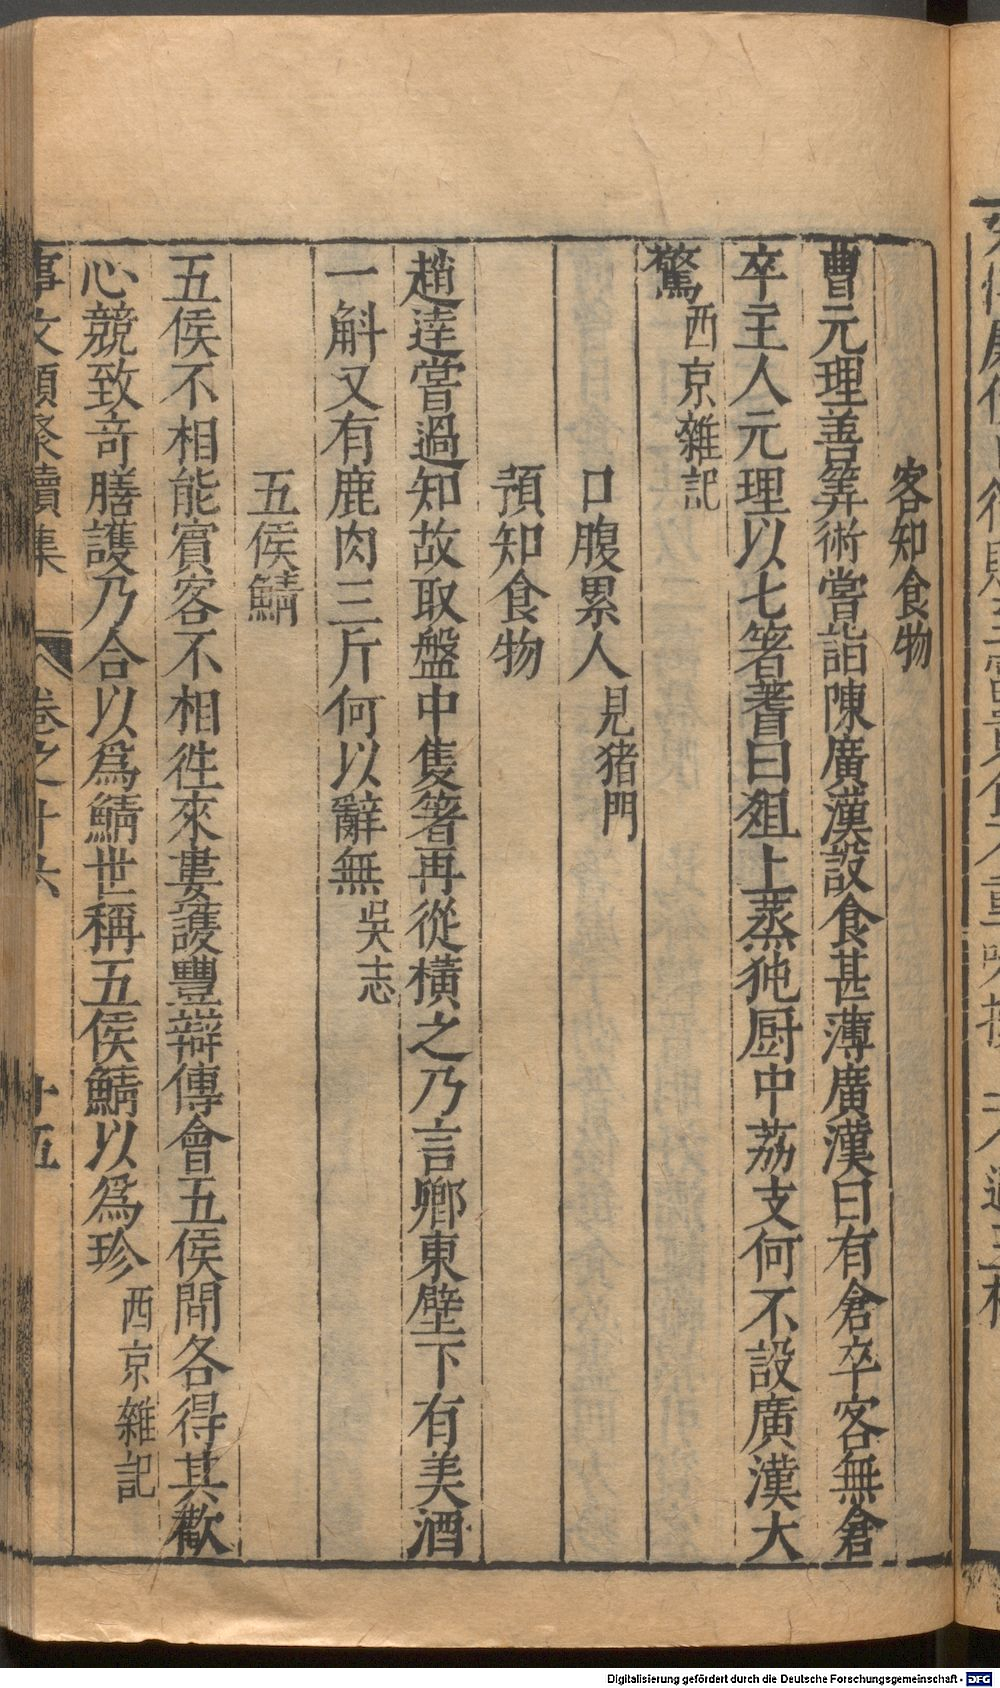 客知食物
曹元理善筭術嘗詣陳廣漢設食甚薄廣漢曰有倉卒客無倉
卒主人元理以七箸蓍曰俎上蒸㹠厨中荔支何不設廣漢大
驚西京雜記
口腹累人見猪門
預知食物
趙達嘗過知故取盤中隻箸再從橫之乃言鄉東壁下有美酒
一斛又有鹿肉三斤何以辭無吳志
五侯鯖
五侯不相能賓客不相徃來婁護豐辯傳會五侯間各得其歡
心競致竒膳護乃合以爲鯖世稱五侯鯖以爲珍西京雜記
事文類聚續集 卷之十六 十五
Digitalisierung gefördert durch die Deutsche Forschungsgemeinschaft - DFG